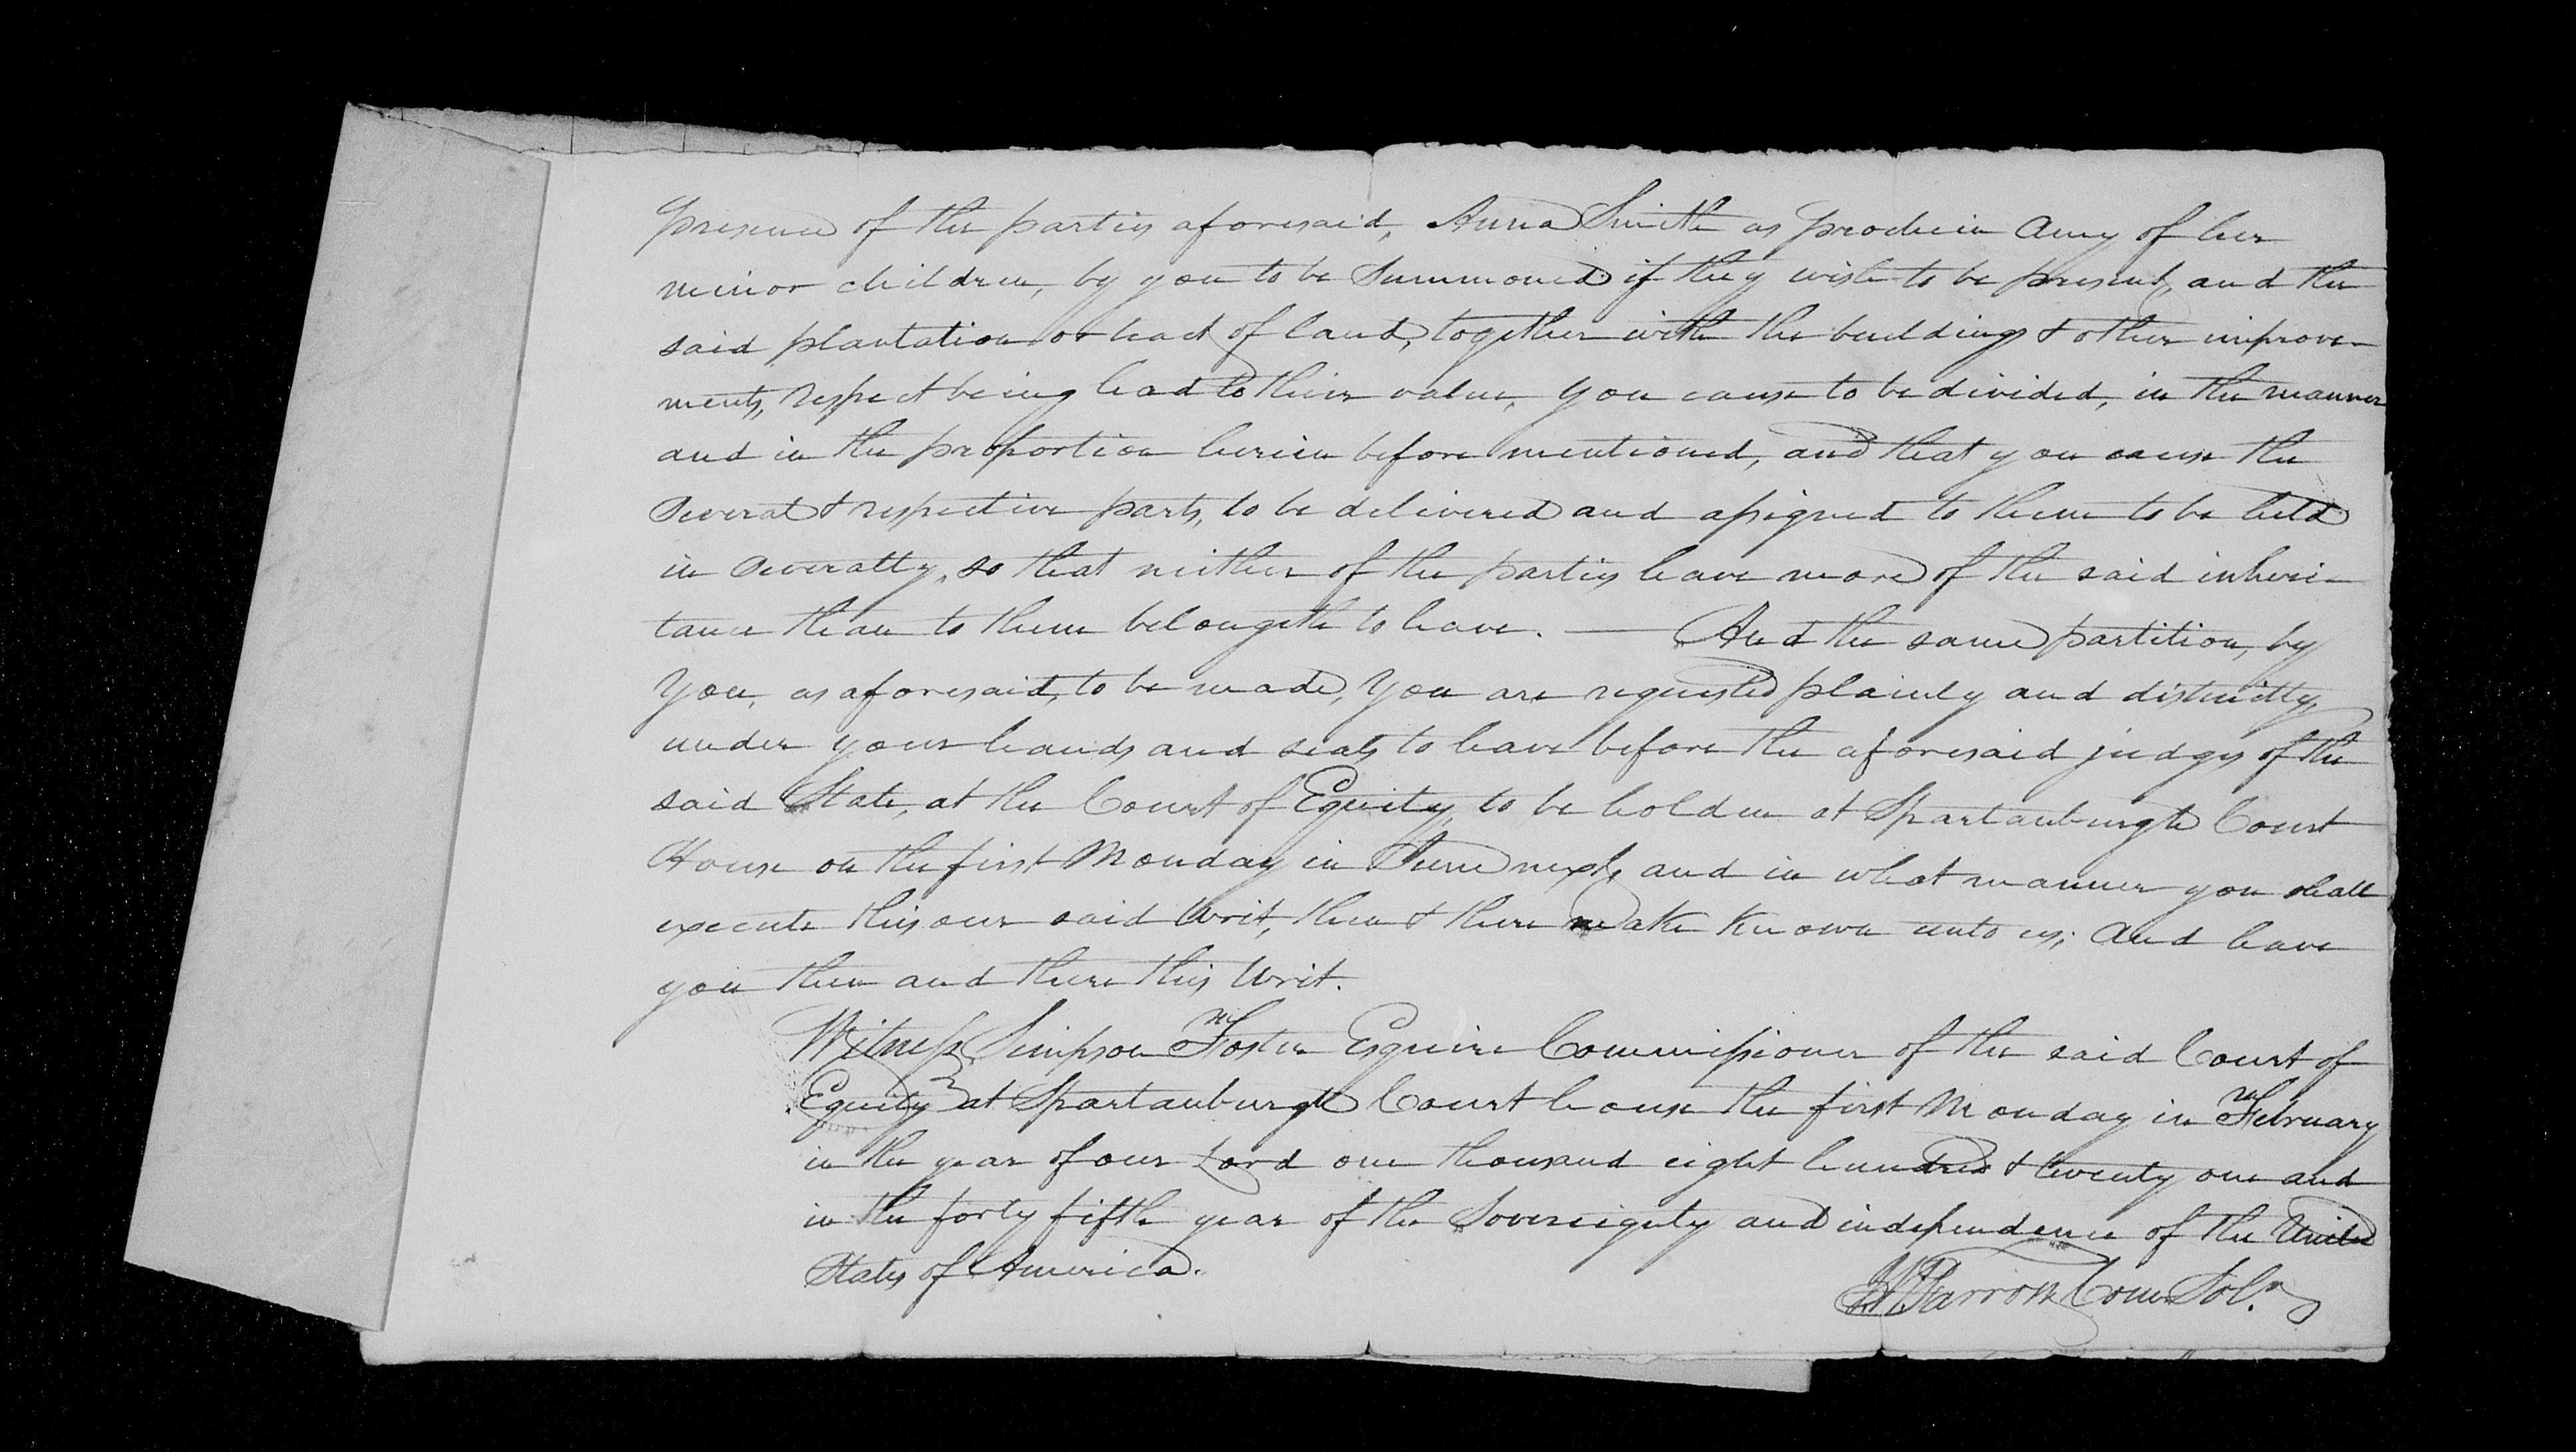 presence of the parties aforesaid, Anna Smith as prochein Amy of her
minor children, by you to be Summoned if they wish to be present, and the
said plantation or tract of land, together with the buildings & other improve-
ments, respect being had to their value, you cause to be divided, in the manner
and in the proportion herein before mentioned, and that you cause the
Several & respective parts, to be delivered and assigned to them to be held
in Severalty, so that neither of the parties have more of the said inheri-
tance than to them belongeth to have. — And the same partition, by
You, as aforesaid, to be made, You are requested plainly and distinctly,
under your hands and seals to have before the aforesaid judges of the
said State, at the Court of Equity, to be holden at Spartanburgh Court
House on the first Monday in June next, and in what manner you shall
execute this our said Writ, then & there make known unto us; And have
you then and there this Writ.
Witness Simpson Foster Esquire Commissioner of the said Court of
Equity at Spartanburgh Court house the first Monday in February
in the year of our Lord one thousand eight hundred & twenty one and
in the forty fifth year of the Sovereignty and independence of the United
States of America.
Farrow Com Solr.